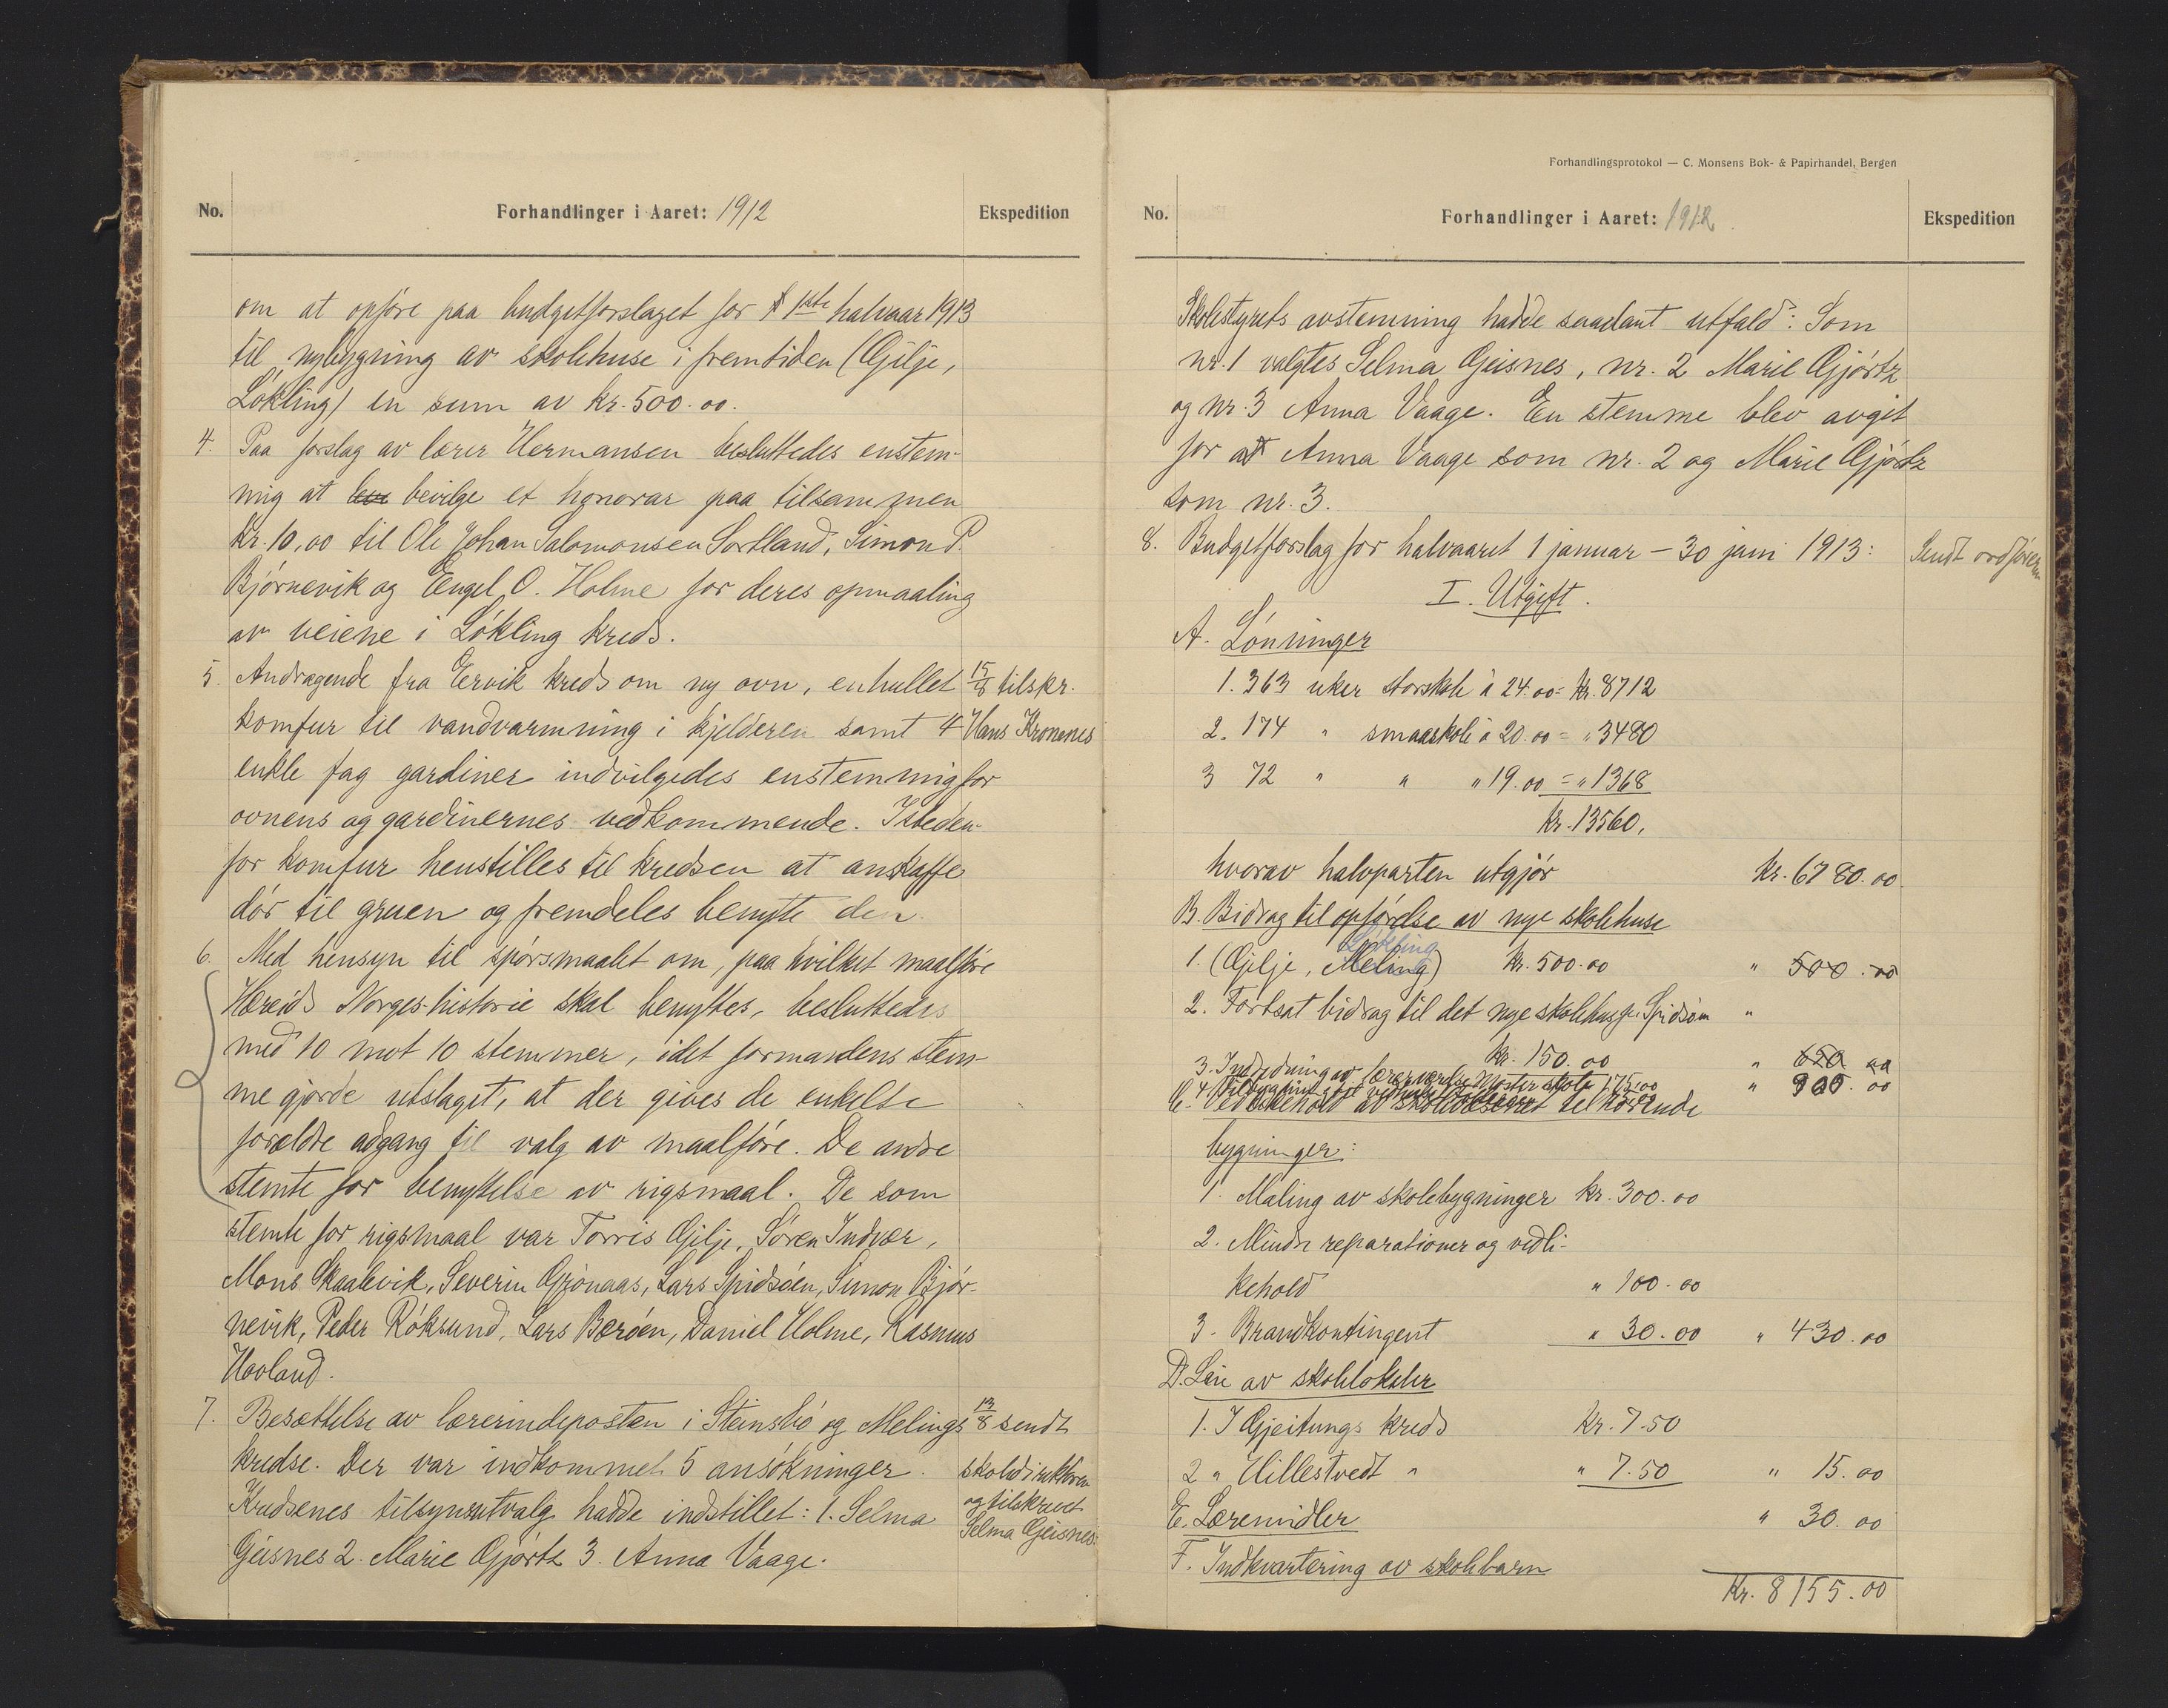 No.
Forhandlinger i Aaret: 1912
Ekspedition
om at opføre paa budgetforslaget for 1ste halvaar 1913
til nybygning av skolehuse i fremtiden (Gjilje,
Løkling) en sum av kr. 500.00.
4. Paa forslag av lærer Hermansen besluttedes enstem-
mig at bevilge et honorar paa tilsammen
Kr. 10,00 til Ole Johan Salomonsen Sortland, Simon P.
Bjørnevik og Engel O. Holme for deres opmaaling
av veiene i Løkling kreds.
5. Andragende fra Eervik kreds om ny ovn, enhullet
15/8 tilskr.
komfur til vandvarmning i kjelderen samt 4
Hans Kronenes
enkle fag gardiner indvilgedes enstemmig for
ovnens og gardinernes vedkommende. Isteden-
for komfur henstilles til kredsen at anskaffe
dør til gruen og fremdeles benytte den
6. Med hensyn til spørsmaalet om, paa hvilket maalføre
Hæreids Norges-historie skal benyttes, besluttedes
med 10 mot 10 stemmer, idet formandens stem-
me gjorde utslaget, at der gives de enkelte
forældre adgang til valg av maalføre. De andre
stemte for benyttelse av rigsmaal. De som
stemte for rigsmaal var Torris Gjilje, Søren Indvær,
Mons Skaalevik, Severin Grønaas, Lars Spidsøen, Simon Bjør-
nevik, Peder Røksund, Lars Bærøen, Daniel Holme, Rasmus
Hovland.
7. Besættelse av lærerindeposten i Steinsbø og Melings
13/8 sendt
kredse. Der var indkommet 5 ansøkninger.
skoledirektøren
Kredsenes tilsynsutvalg hadde indstillet: 1. Selma
og tilskrevet
Selma Geisnes.
Geisnes 2. Marie Gjørtz 3. Anna Vaage.
Forhandlingsprotokol — C. Monsens Bok- & Papirhandel, Bergen
No.
Forhandlinger i Aaret: 1912.
Ekspedition
Skolestyrets avstemning hadde saadant utfald: Som
nr. 1 valgtes Selma Geisnes, nr. 2 Marie Gjørtz
og nr. 3 Anna Vaage. En stemme blev avgit
for at Anna Vaage som nr. 2 og Marie Gjørtz
som nr. 3.
8. Budgetforslag for halvaaret 1 januar – 30 juni 1913:
Sendt ordføren
I. Utgift.
A. Lønninger
1. 363 uker storskole à 24.00 = kr. 8712
2. 174 " smaaskole à 20.00 = " 3480
3 72 " " " 19.00 = " 1368
Kr. 13560.
hvorav halvparten utgjør Kr. 6780.00
B. Bidrag til opførelse av nye skolehuse
Løkling
1. (Gjilje, Meling) Kr. 500.00 " 500.00
2. Fortsat bidrag til det nye skolehus i Spidsøen "
Kr. 150.00 " 650 00
3. Indredning av lærerværelse Moster skole 175.00
" 900.00
C. Vedlikehold av skolevæsenet tilhørende
bygninger:
1. Maling av skolebygninger kr. 300.00
2. Mindre reparationer og vedli-
kehold " 100.00
3. Brandkontingent " 30.00 " 430.00
D. Leie av skolelokaler
1. I Gjeitungs kreds Kr. 7.50
2 " Hillestvedt " " 7.50 " 15.00
E. Læremidler " 30.00
F. Indkvartering av skolebarn
Kr. 8155.00